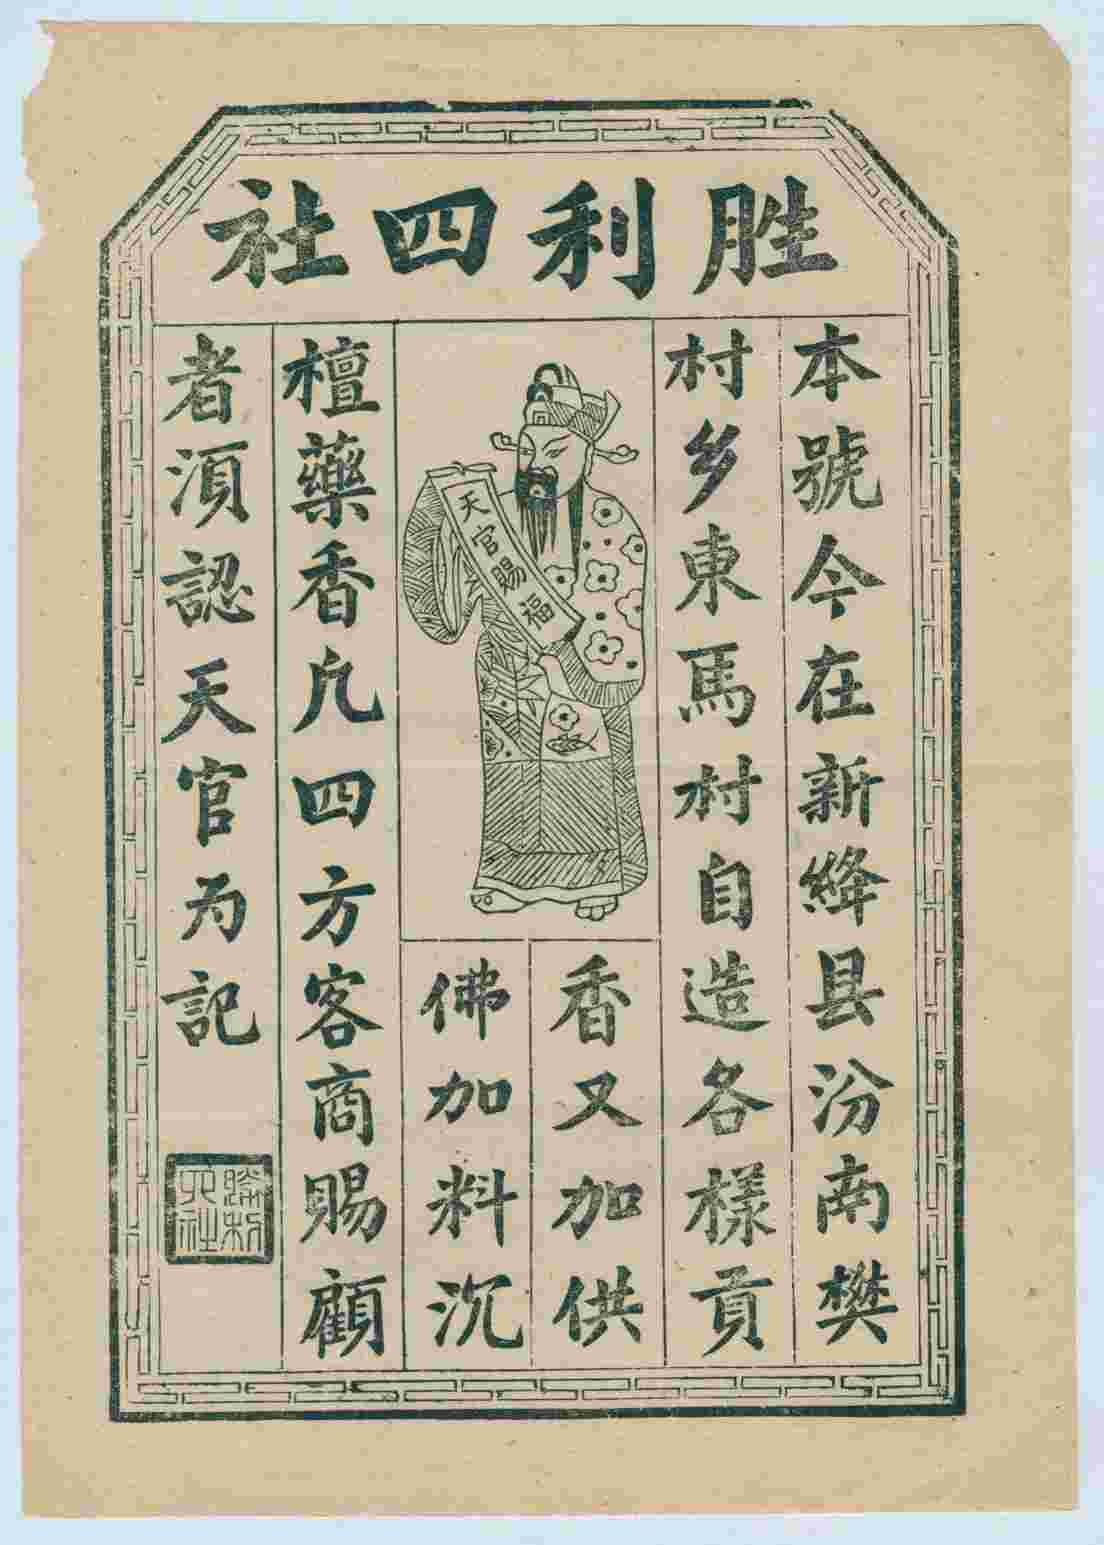 胜利四社
本號今在新絳县汾南樊
村乡東馬村自造各樣貢
天官賜福
香又加供
佛加料沉
檀藥香凢四方客商賜顧
者湏認天官为記
勝利
社